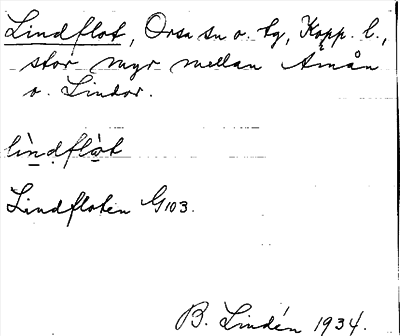 Lindflot, Orsa sn o. tg, Kopp. l.,
stor myr mellan Amån
o. Lindor.
lìndflòt
Lindfloten G103.
B. Lindén 1934.